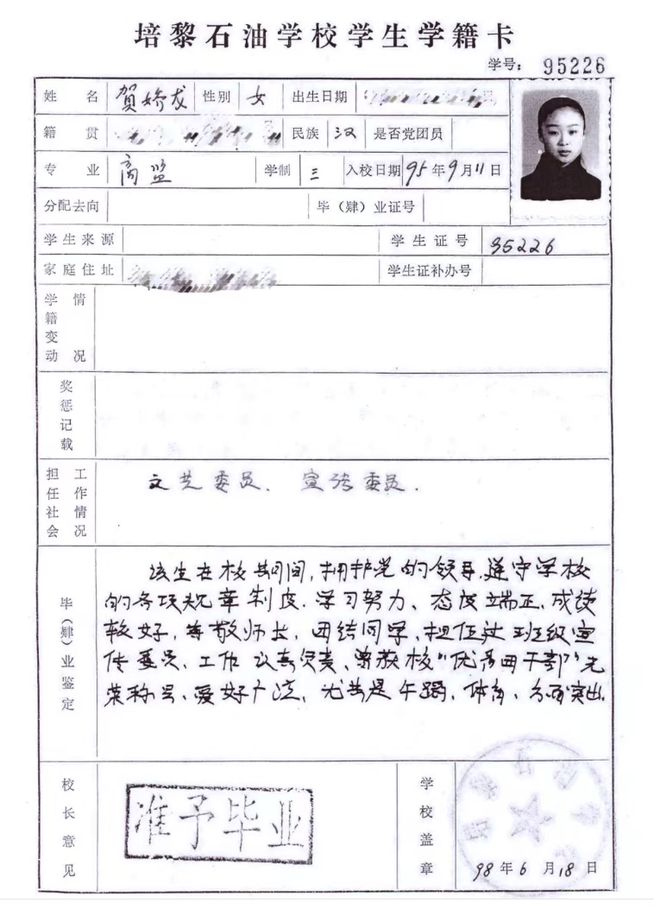 培黎石油学校学生学籍卡
学号：95226
姓名 贺娇龙 性别 女 出生日期
籍贯 民族 汉 是否党团员
专业 商监 学制 三 入校日期 95年9月11日
分配去向 毕（肄）业证号
学生来源 学生证号 95226
家庭住址 学生证补办号
学籍变动情况
奖惩记载
担任社会工作情况 文艺委员、宣传委员.
毕（肄）业鉴定
该生在校期间，拥护党的领导，遵守学校
的各项规章制度.学习努力、态度端正、成绩
较好，尊敬师长，团结同学，担任过班级宣
传委员、工作认真负责、曾获校“优秀团干部”光
荣称号、爱好广泛，尤其是午蹈，体育，方面突出.
校长意见 准予毕业 学校盖章 98年6月18日